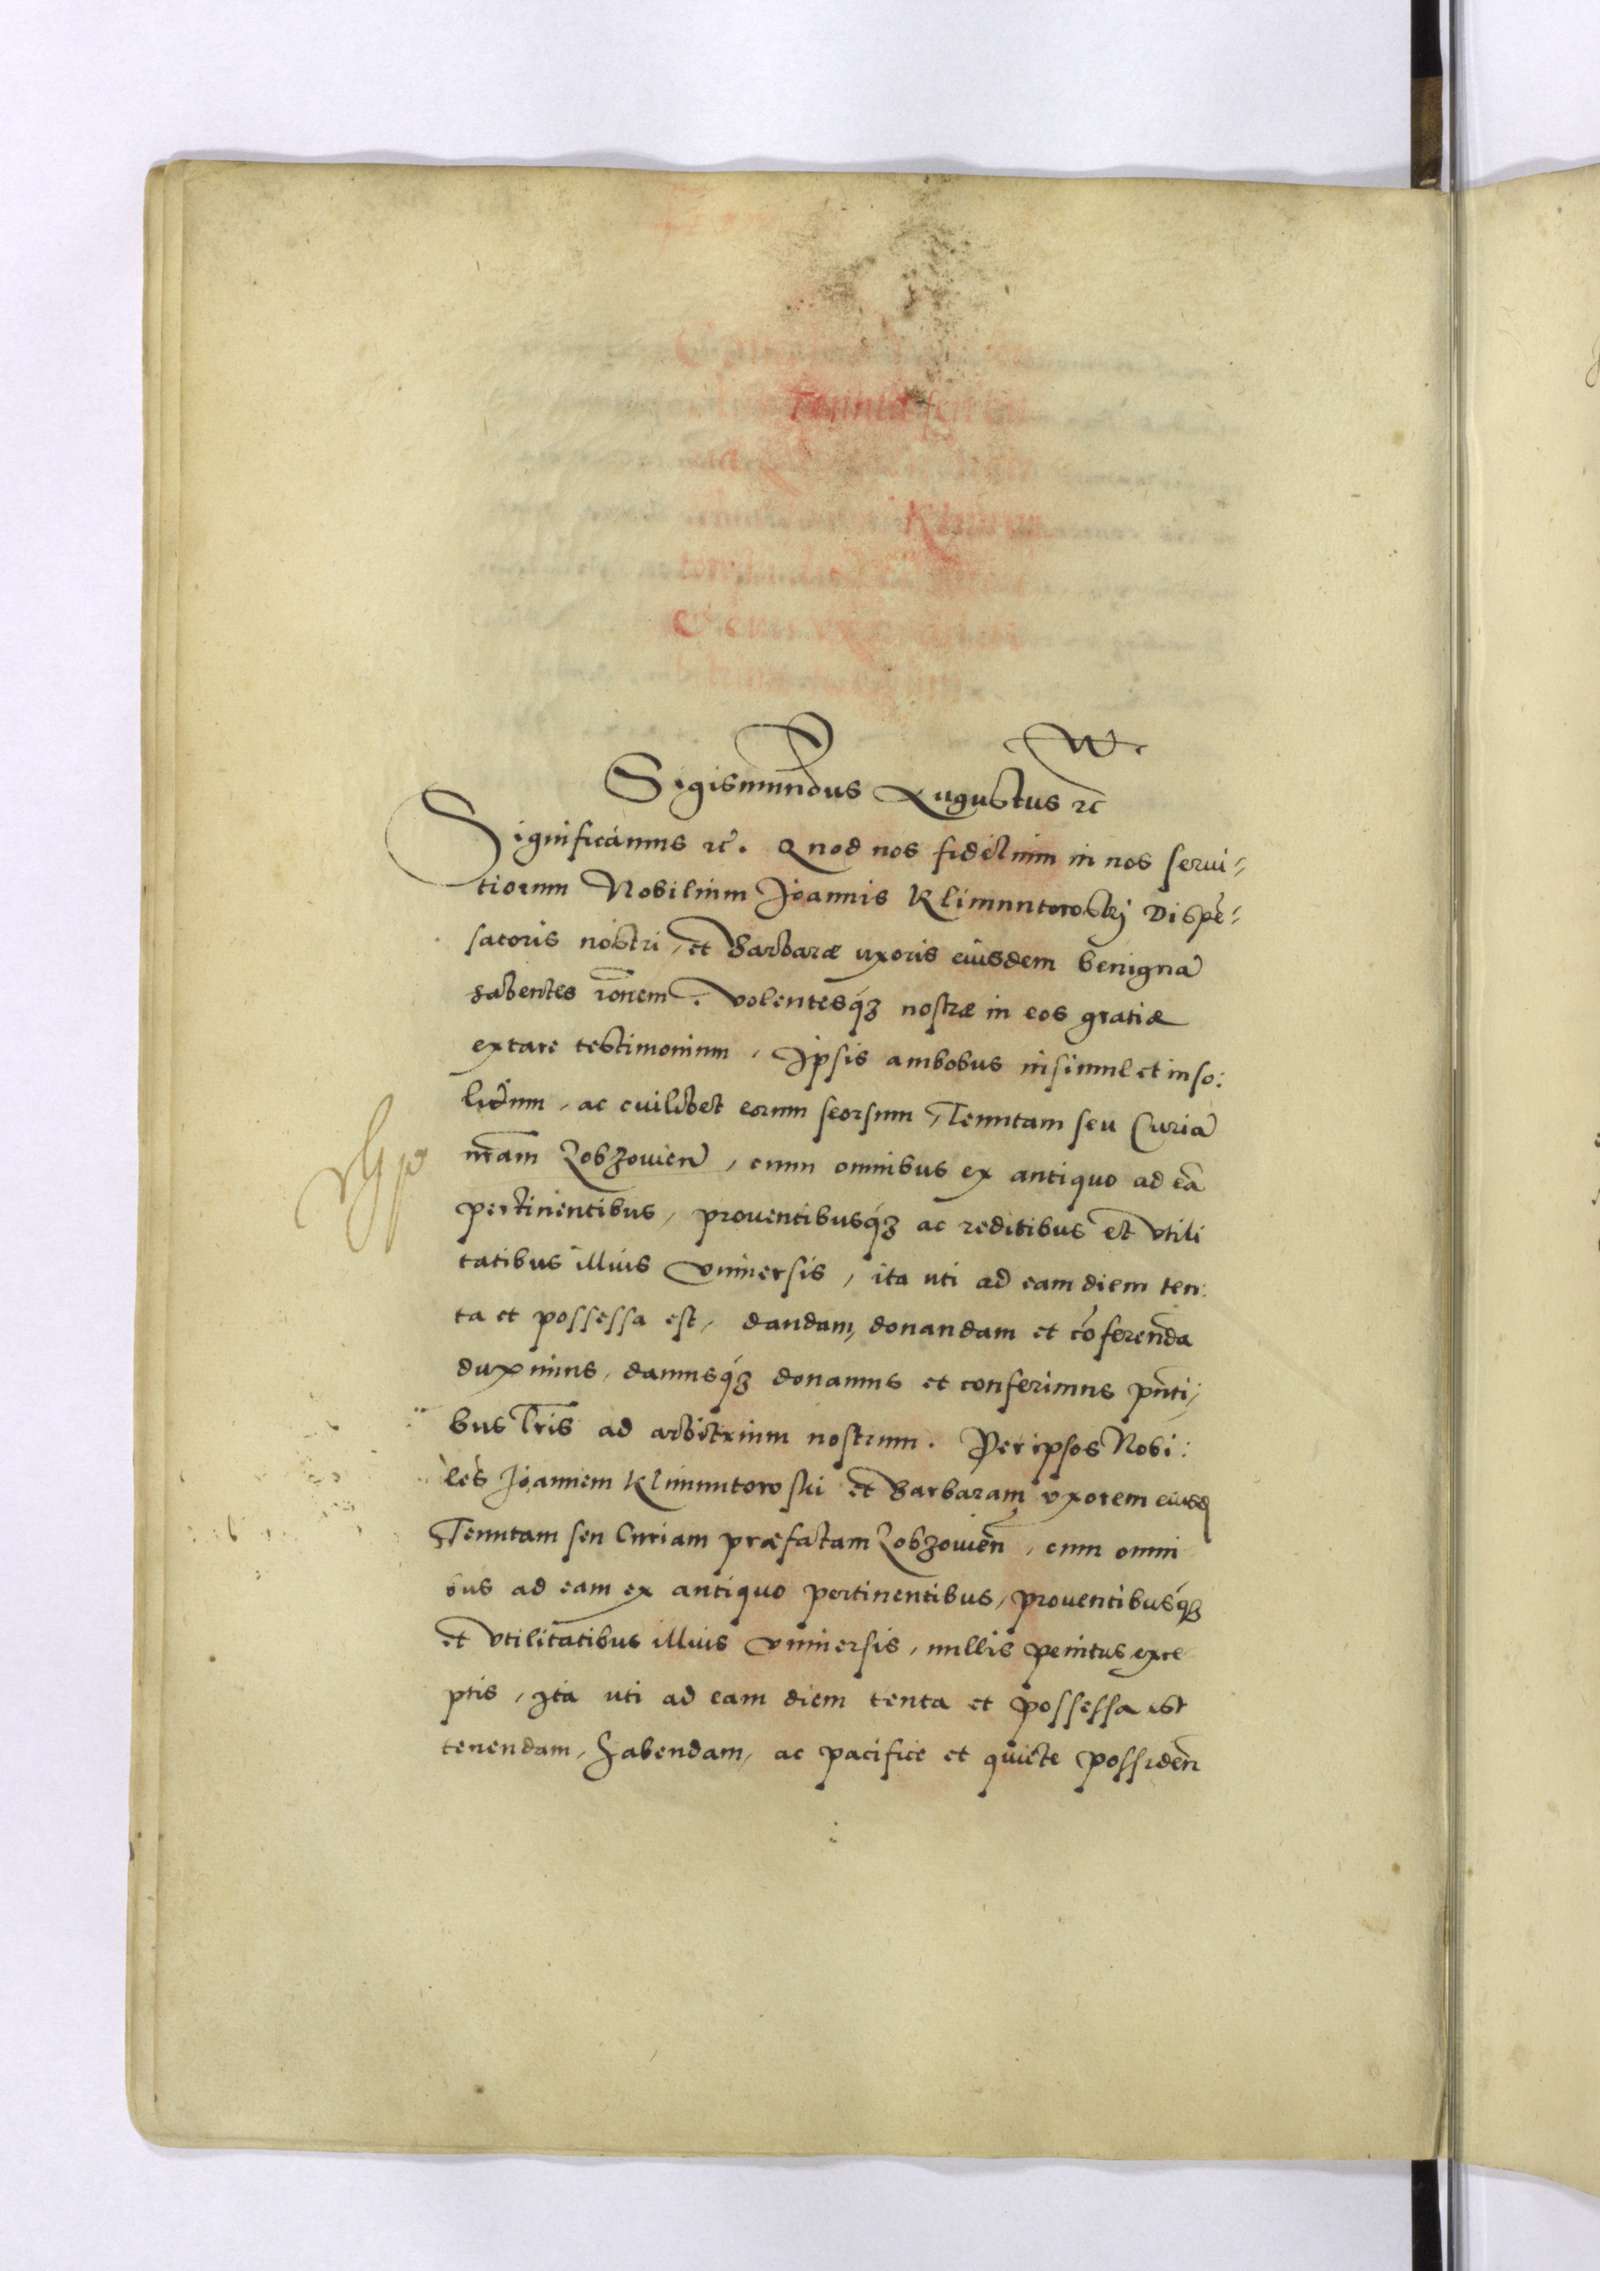 Sigismundus Augustus ꝛc
Significamus ꝛc. Quod nos fidelium in nos serui-
tiorum Nobilium Joannis Klimuntowskj Dispẽ-
satoris nostri, et Barbaræ uxoris eiusdem benignã
habentes rõnem. Volentesq́ꝫ nostræ in eos gratiæ
extare testimonium, Ipsis ambobus insimul et inso:
lidum, ac cuilibet eorum seorsum, Tenutam seu Curiã
nr̃am Lobzouien̄, cum omnibus ex antiquo ad eã
pertinentibus, prouentibusq́ꝫ ac reditibus et vtili
tatibus illius vniuersis, ita uti ad eam diem ten:
ta et possessa est, dandam, donandam et cõferenda
duximus, damusq́ꝫ donamus et conferimus pñti,
bus Lr̃is ad arbitrium nostrum. Per ipsos Nobi:
les Joannem Klimuntowski et Barbaram vxorem eiusd
Tenutam seu Curiam præfatam Lobzouien̄, cum omni
bus ad eam ex antiquo pertinentibus, prouentibusq́ꝫ
et vtilitatibus illius vniuersis, nullis penitus exce
ptis, Ita uti ad eam diem tenta et possessa est
tenendam, habendam, ac pacifice et quiete possiden̄